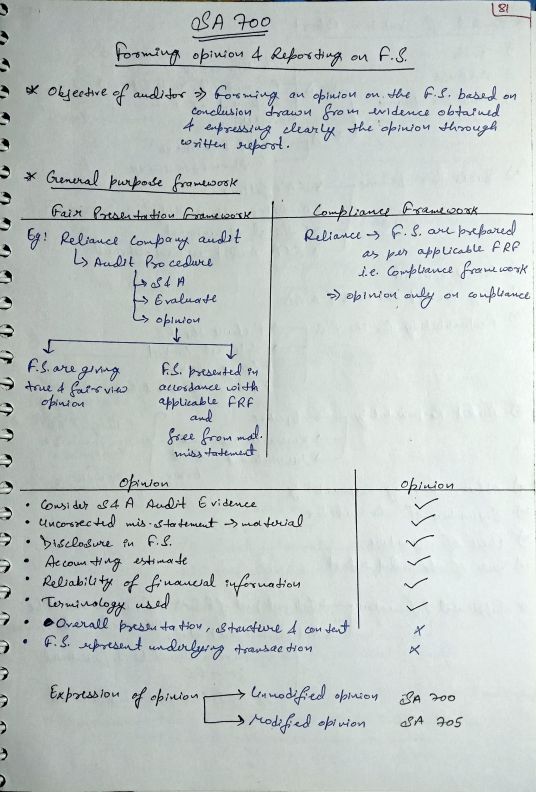 81
SA 700
Forming opinion & Reporting on F.S.
* Objective of auditor ⇒ Forming an opinion on the F.S. based on
conclusion drawn from evidence obtained
& expressing clearly the opinion through
written report.
* General purpose framework
Fair Presentation Framework
Eg: Reliance Company audit
↳ Audit Procedure
↳ S & A
↳ Evaluate
↳ opinion
F.S. are giving
true & fair view
opinion
F.S. presented in
accordance with
applicable FRF
and
free from mat.
misstatement
Compliance Framework
Reliance → F.S. are prepared
as per applicable FRF
i.e. Compliance framework
⇒ opinion only on compliance
Opinion Opinion
• Consider S & A Audit Evidence ✓
• Uncorrected mis-statement → material ✓
• Disclosure in F.S. ✓
• Accounting estimate ✓
• Reliability of financial information ✓
• Terminology used ✓
• Overall presentation, structure & content ×
• F.S. represent underlying transaction ×
Expression of opinion → Unmodified opinion SA 700
→ Modified opinion SA 705